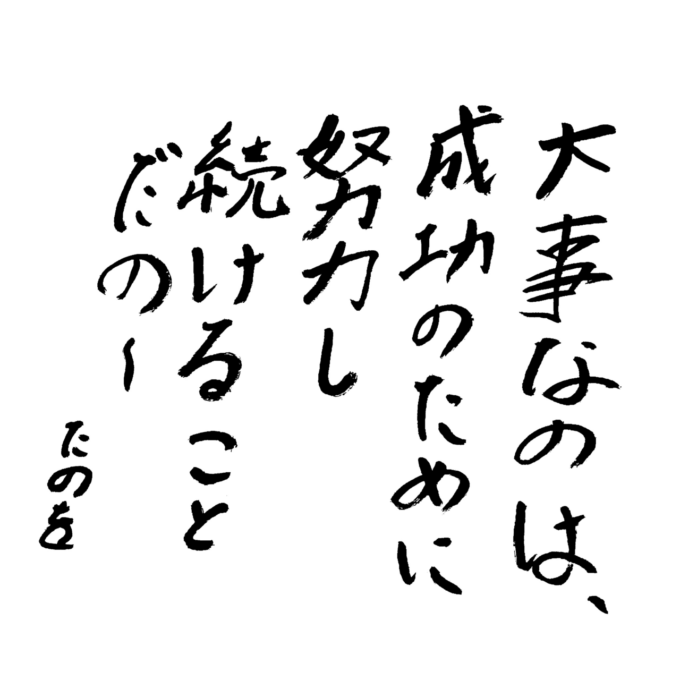 大事なのは、
成功のために
努力し
続けること
だの〜
たのを